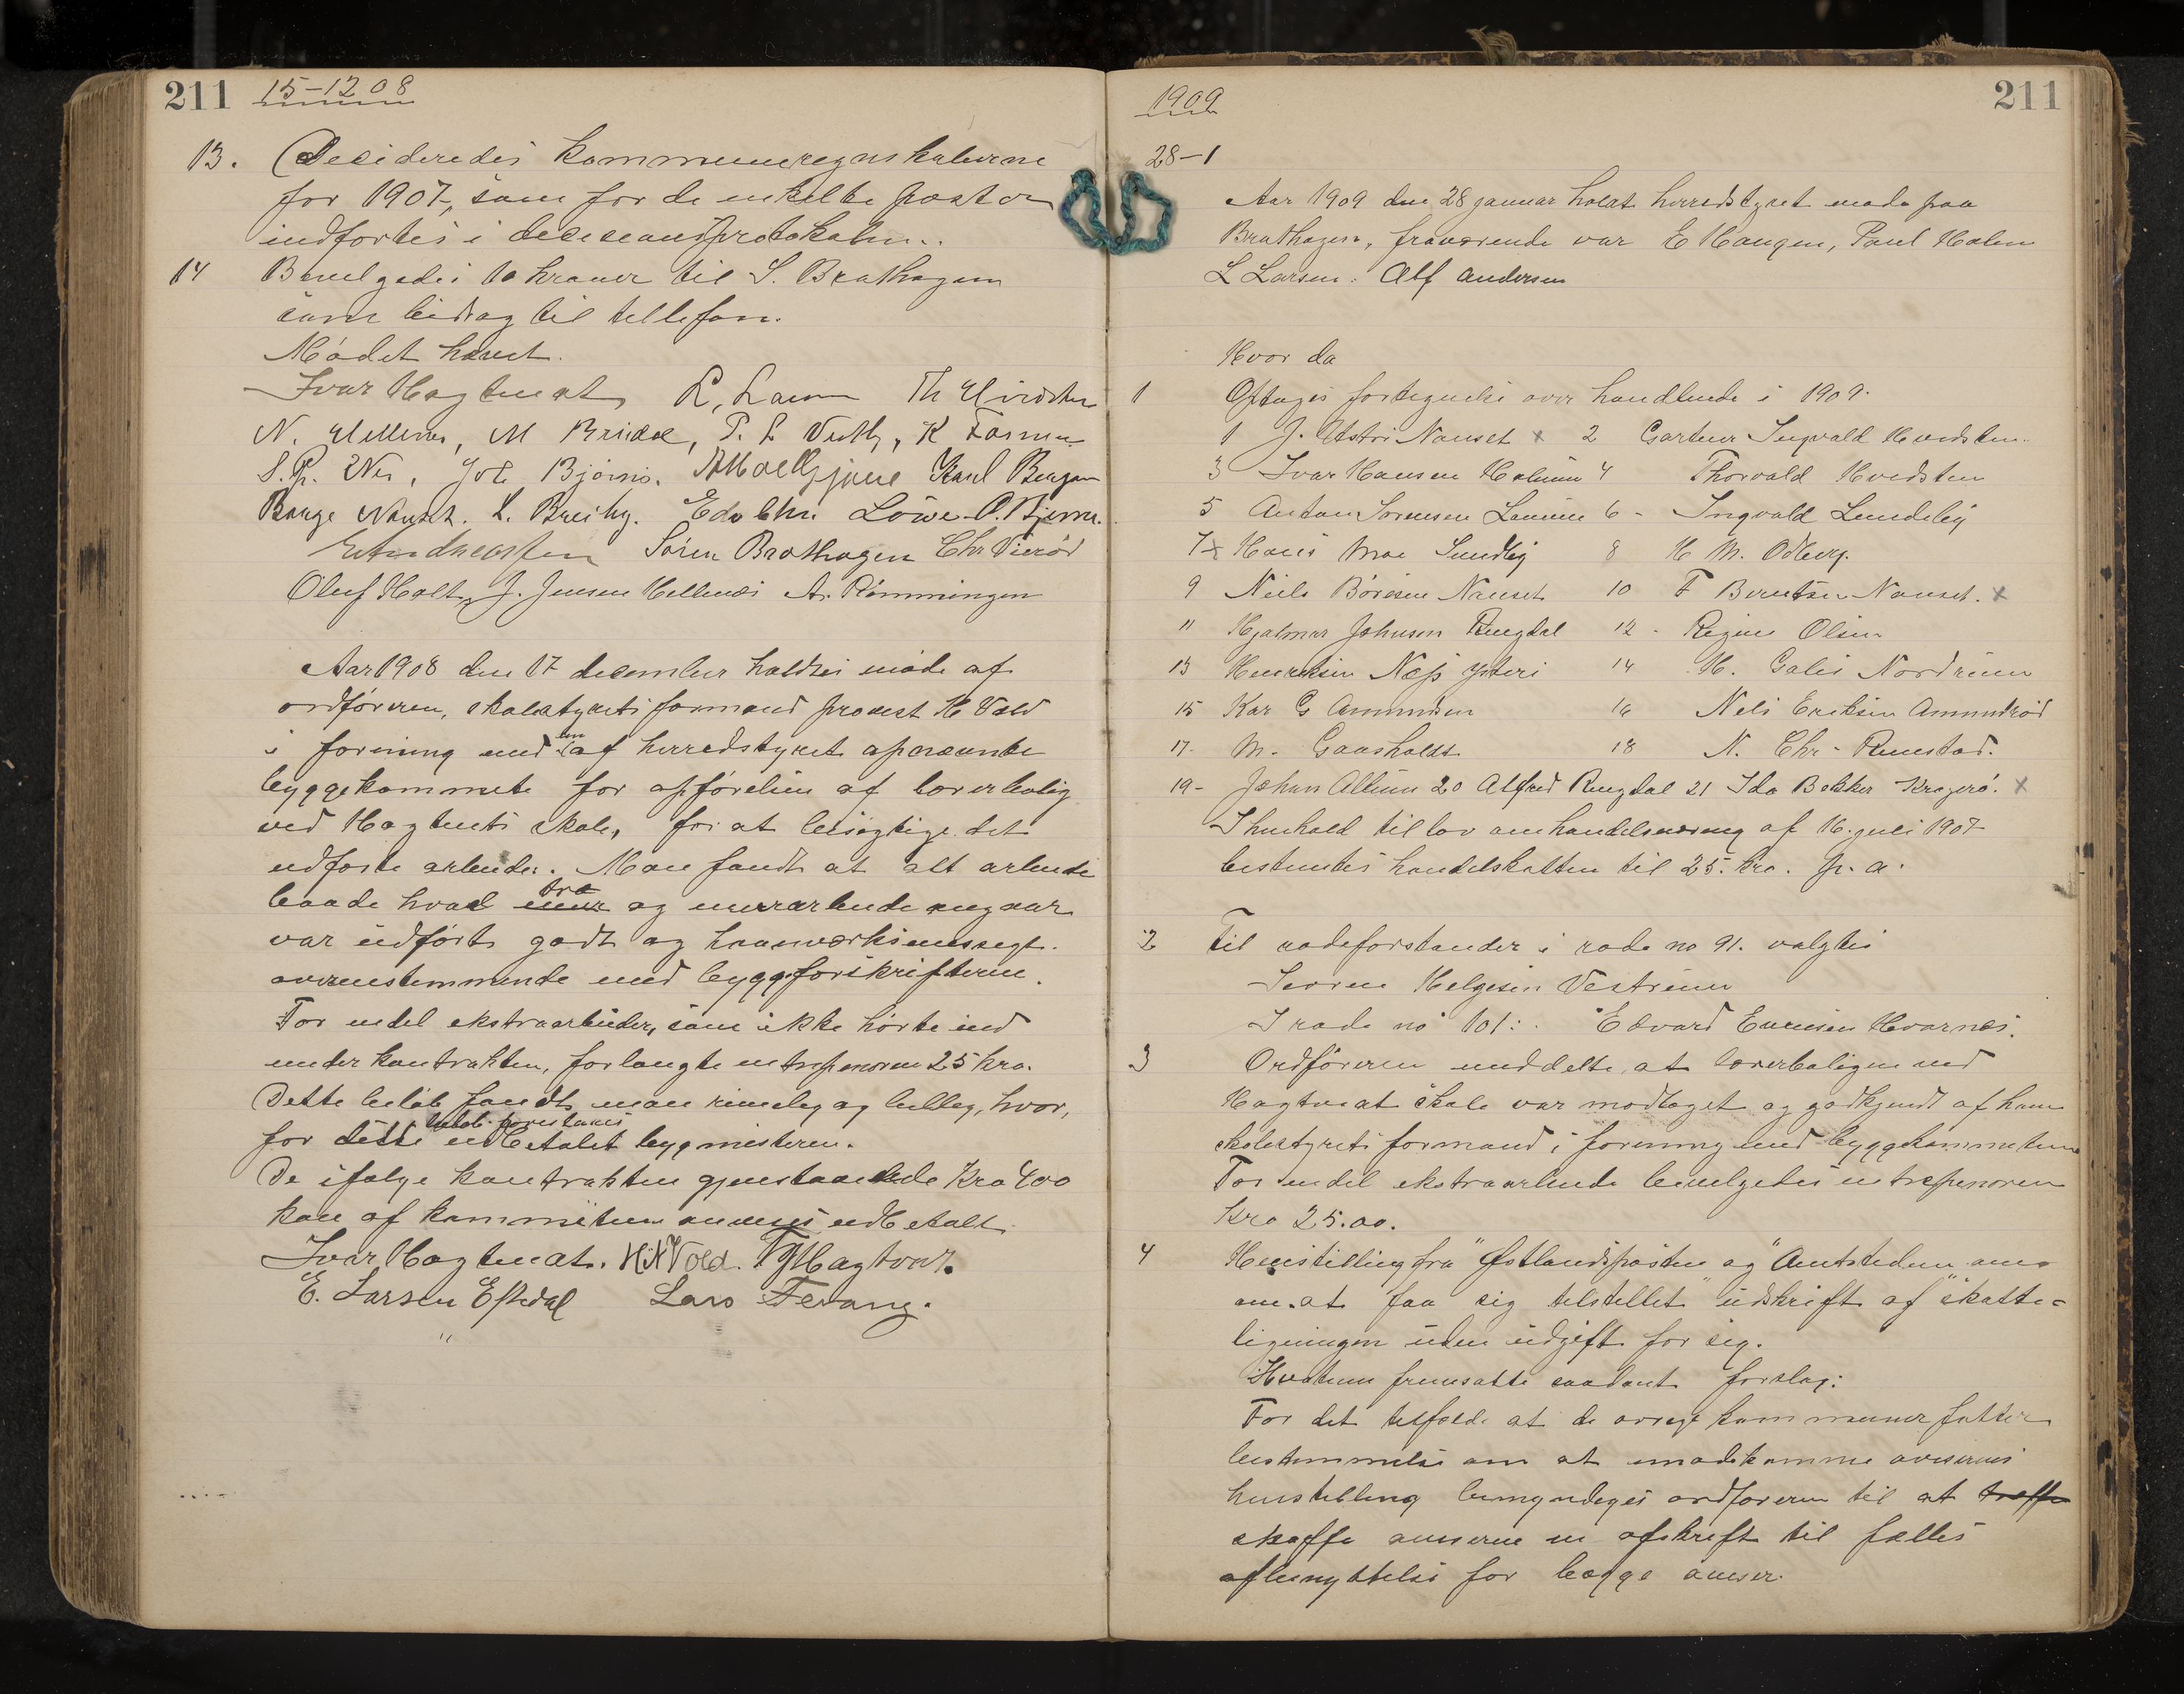 211 15-12 08
13. Desideredes kommuneregnskaberne
for 1907, som for de enkelte poster
indførtes i decisionsprotokolen.
14 Bevilgedes 10 kroner til S. Brathagen
som bidrag til tellefon.
Mødet hævet.
Ivar Hogtveat L. Larsen Th Hvidsten
N. M T. L K
S. P. Joh Bjørnø. Karl Bergan
Borge Nauset. L. Breiby. Edv Chr Löwe O. Bjerne.
Søren Brathagen Chr Vierød
Oluf Holt, J. Jensen Hellenes A. Rømmingen
Aar 1908 den 17 december holdtes møde af
ordføreren, skolestyrets formand provest H Vold
i forening med den af herredstyret opnævnte
byggekommete for opførelsen af lærerbolig
ved Hogtvets skole, for at besigtige det
udførte arbeide. Man fandt at alt arbeide
baade hvad mur træ og murrarbeide angaar
var udført godt og haanværksmessegt
overenstemmende med byggeforskrifterne.
For endel ekstraarbeider, som ikke hørte ind
under kontrakten, forlangte entreprenøren 25 kro.
Dette beløb fandt man rimeleg og billeg, hvor,
for dette beløb forestaaes udbetalet bygmesteren.
De ifølge kontrakten gjenstaaende Kro 400
kan af kommiteen anvises udbetalt
Ivar Hogtveat. H. N Vold. T Hagtvat.
E. Larsen Eftedal Lars Tevang.
"
1909 211
28-1
Aar 1909 den 28 januar holdt herredstyret møde paa
Brathagen, fraværende var E Haugen, Paul Holm
L Larsen. Alf Andersen
Hvor da
1 Optages fortegnelse over handlende i 1909.
1 J. Nauset x 2 Gartner Ingvald Hvidsten
3 Ivar Hansen 4 Thorvald Hvidsten
5 Anton Sørensen 6 - Ingvald Lundeby
7 x Hans Moe Sundby 8 H M. Odberg.
9 Niels Børesen Nauset 10 F Berntsen Nauset. x
11 Hjalmar Johnsen Ringdal 12 - Regine Olsen
13 Henriksen Næs 14 H. Galis Nordrum
15 Kar G Amundsen 16 Nils Eriksen Amundrød
17. M. Gaasholdt 18 N. Chr. Rimestad.
19 - Johan Allum 20 Alfred Ringdal 21 Ida Bekker Kragerø. x
I henhold til lov om handelsnæring af 16. juli 1907
bestemtes handelskatten til 25. kro. p. a.
2 Til rodeforstander i rode no 91. valgtes
Helgesen Vestrum
I rode no 101: Edvard Evensen Hvarnes.
3 Ordføreren meddelte at lærerboligen ved
Hagtveat skole var modtaget og godkjendt af ham
skolestyrets formand i forening med byggekommeteen
For endel ekstraarbeide bevilgedes entreprenøren
Kro 25.00.
4 Henstilling fra "Østlandsposten og "Amtstedende
om at faa sig tilstillet udskrift af skatte=
ligningen uden udgift for sig.
Hvatum fremsatte saadant forslag:
For det tilfælde at de øvrege kommuner fatter
bestemmelse om at imødekomme avisernes
henstilling bemyndeges ordføreren til at træffe
skaffe aviserne en afskreft til fælles
afbenyttelse for begge aviser.